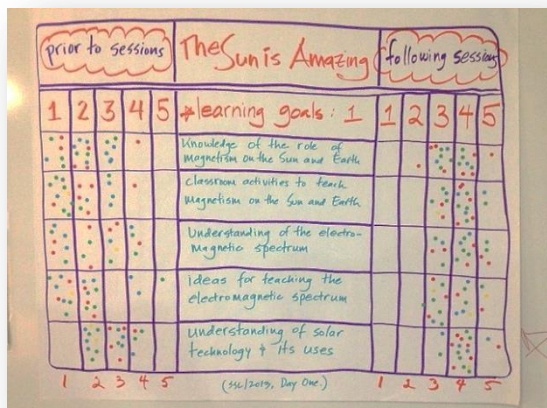 prior to sessions
The Sun is Amazing
following sessions
1 2 3 4 5
learning goals: 1
1 2 3 4 5
Knowledge of the role of
magnetism on the Sun and Earth
classroom activities to teach
magnetism on the Sun and Earth
Understanding of the electro-
magnetic spectrum
ideas for teaching the
electromagnetic spectrum
understanding of solar
technology + its uses
1 2 3 4 5
(SSL/2019, Day One.)
1 2 3 4 5